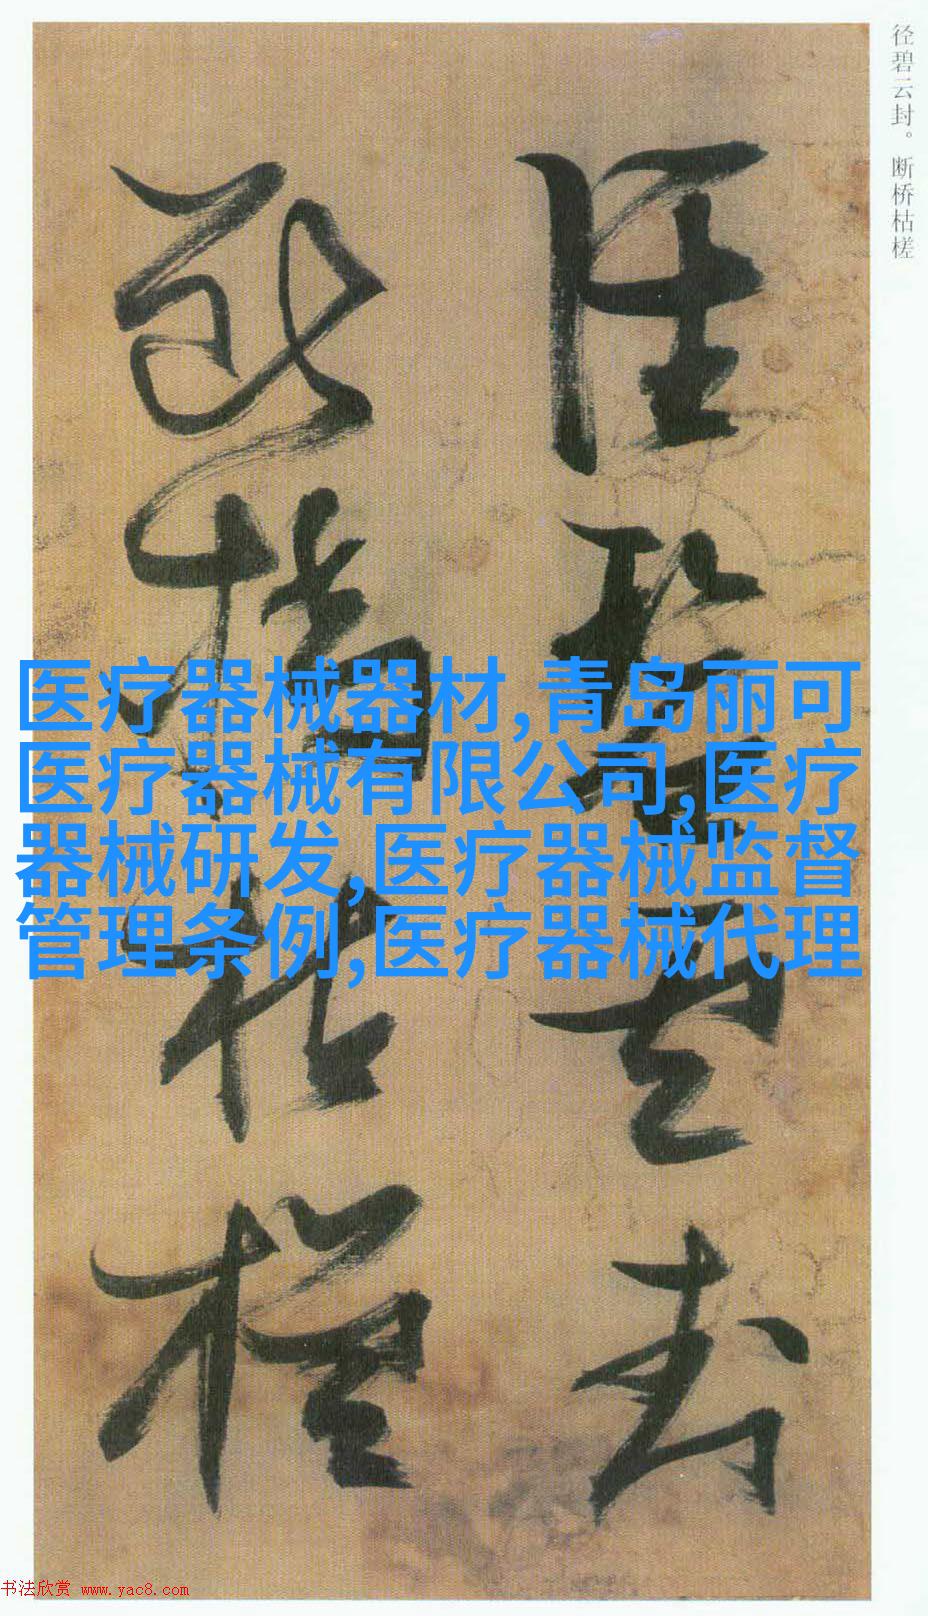 径碧云封。断桥枯槎
径碧云封
断桥枯槎
医疗器械器材,青岛丽可
医疗器械有限公司,医疗
器械研发,医疗器械监督
管理条例,医疗器械代理
书法欣赏 www.yac8.com